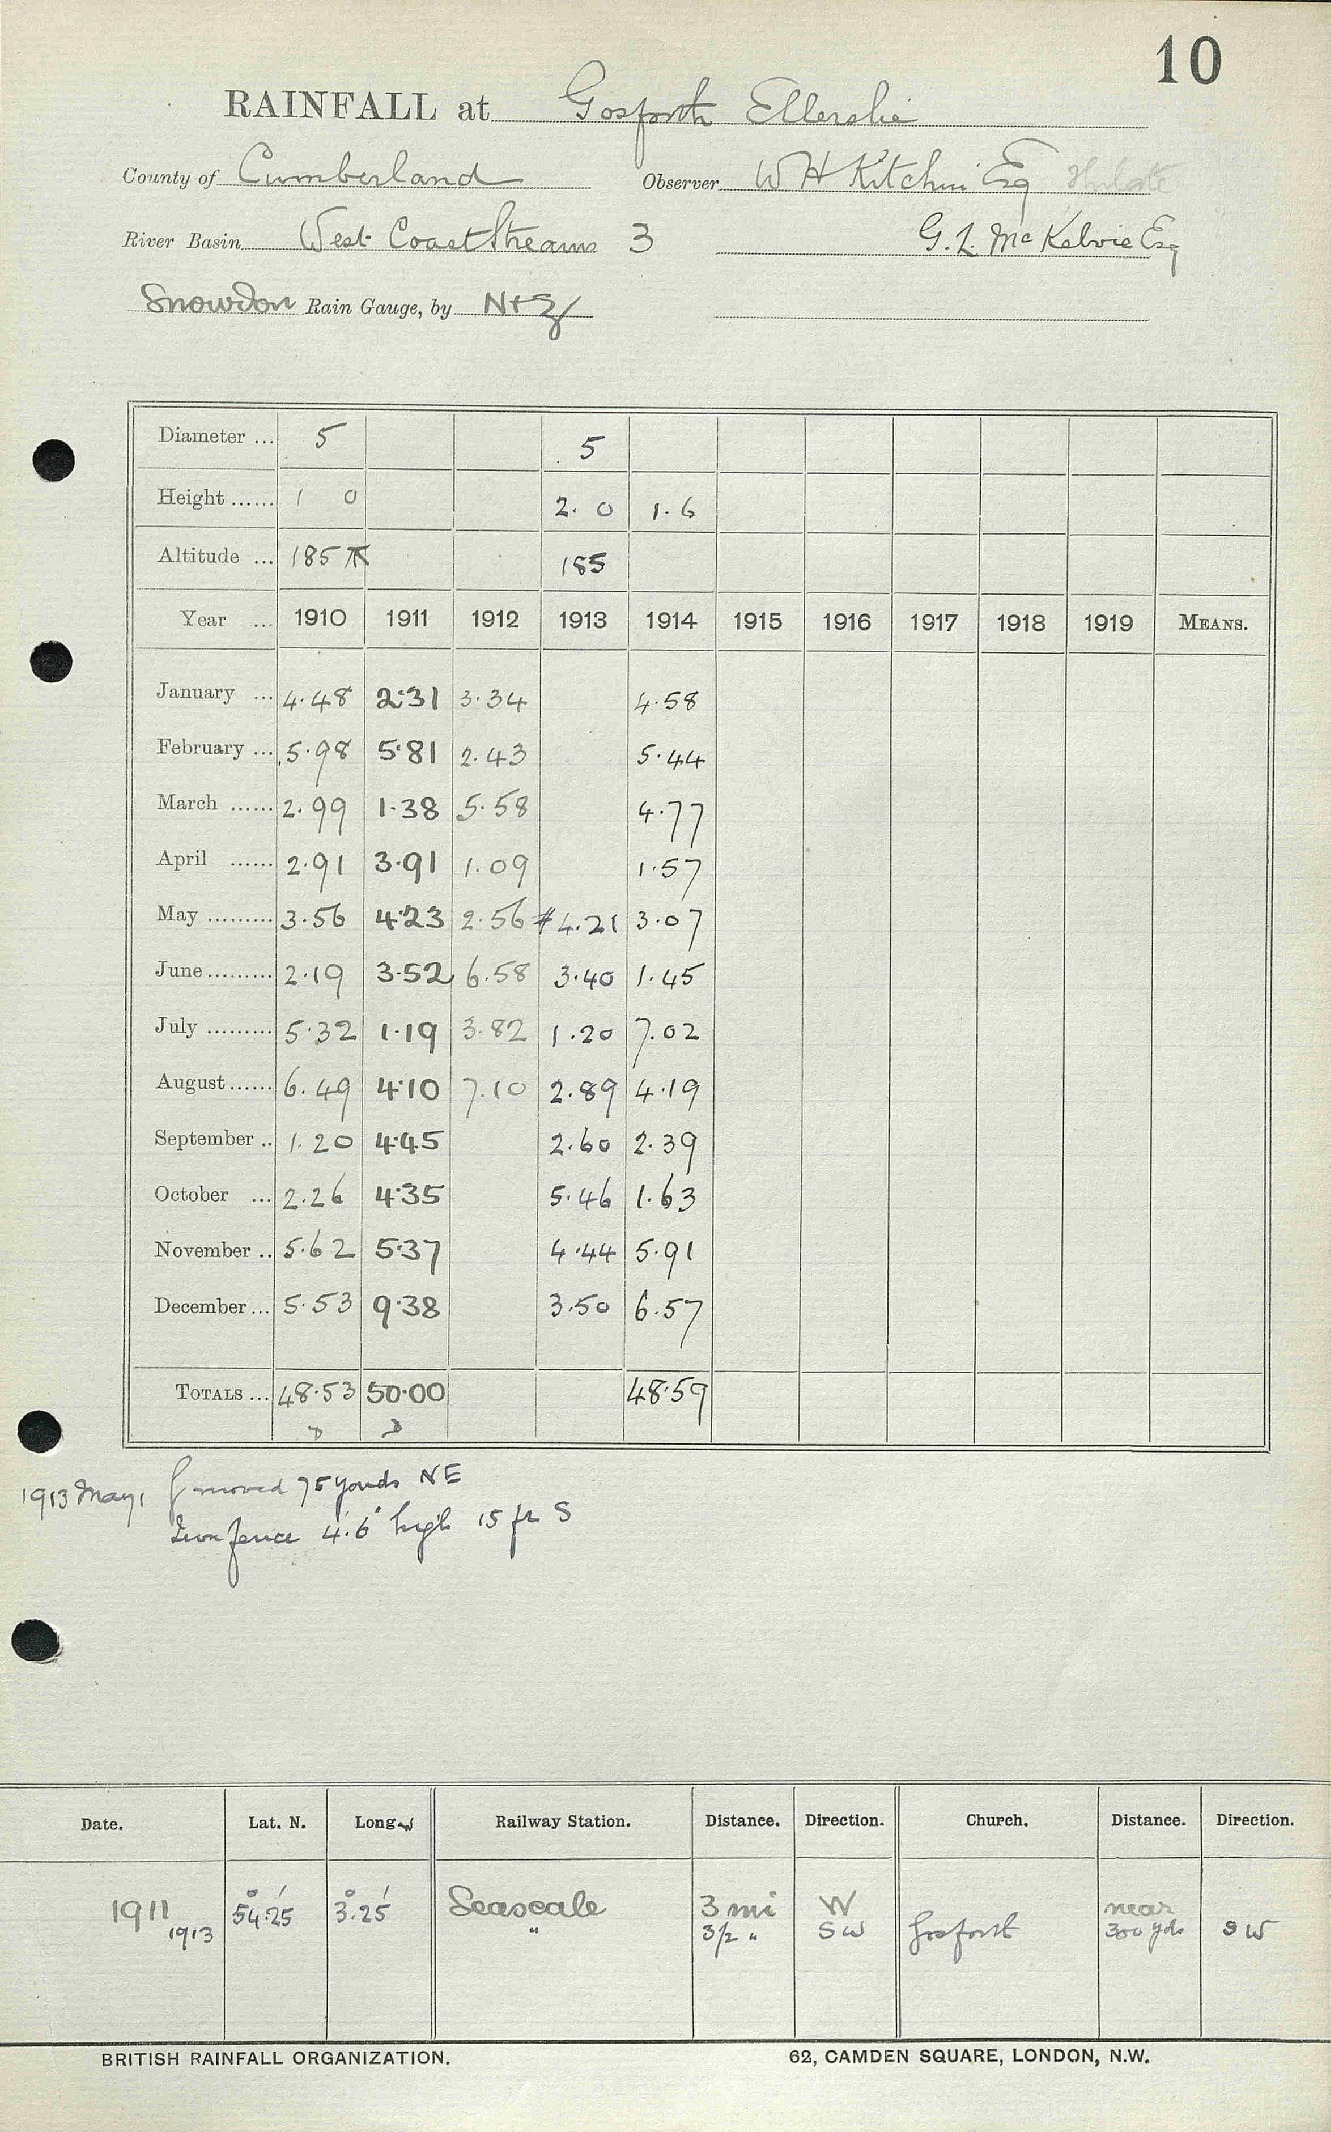 10
RAINFALL at Gosforth Ellerslie
County of Cumberland Observer W H Kitchin Esq
River Basin West Coast Streams 3 G. L. McKelvie Esq
Snowdon Rain Gauge, by N+Z
Diameter ... 5 5
Height ...... 1 0 2. 0 1. 6
Altitude ... 185 185
Year ... 1910 1911 1912 1913 1914 1915 1916 1917 1918 1919 MEANS.
January ... 4.48 2.31 3.34 4.58
February ... 5.98 5.81 2.43 5.44
March ...... 2.99 1.38 5.58 4.77
April ...... 2.91 3.91 1.09 1.57
May ......... 3.56 4.23 2.56 #4.21 3.07
June ......... 2.19 3.52 6.58 3.40 1.45
July ......... 5.32 1.19 3.82 1.20 7.02
August ...... 6.49 4.10 7.10 2.89 4.19
September .. 1.20 4.45 2.60 2.39
October ... 2.26 4.35 5.46 1.63
November .. 5.62 5.37 4.44 5.91
December ... 5.53 9.38 3.50 6.57
TOTALS ... 48.53 50.00 48.59
1913 May 1 moved 75 yards NE
Iron fence 4'.6" high 15 ft S
Date. Lat. N. Long. W Railway Station. Distance. Direction. Church. Distance. Direction.
1911 54°25' 3°.25' Seascale 3 mi W near
1913 " 3½ " SW Gosforth 300 yds SW
BRITISH RAINFALL ORGANIZATION. 62, CAMDEN SQUARE, LONDON, N.W.